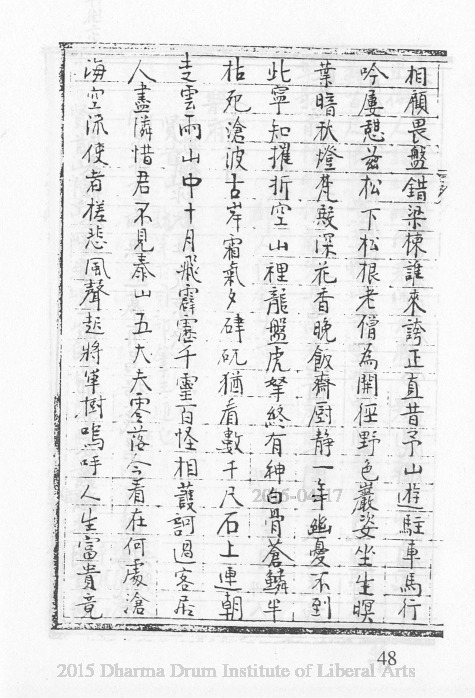 相顧畏盤錯梁棟誰來誇正直昔予山遊駐車馬行
吟屢憩茲松下松根老僧為開徑野色巖姿坐生暝
葉暗秋燈梵殿深花香晚飯齋廚靜一年幽憂不到
此寧知摧折空山裡龍盤虎拏終有神白骨蒼鱗半
枯死滄波古岸霜氣夕硉矹猶看數千尺石上連朝
走雲雨山中十月飛霹靂千靈百怪相護訶過客居
人盡憐惜君不見泰山五大夫零落今看在何處滄
海空流使者槎悲風聲起將軍樹嗚呼人生富貴竟
48
2015-04-17
2015 Dharma Drum Institute of Liberal Arts